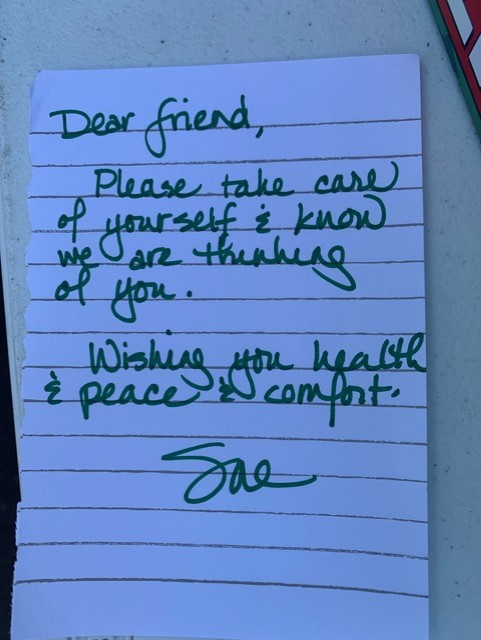 Dear friend,
Please take care
of yourself & know
we are thinking
of you.
Wishing you health
& peace & comfort.
Sae